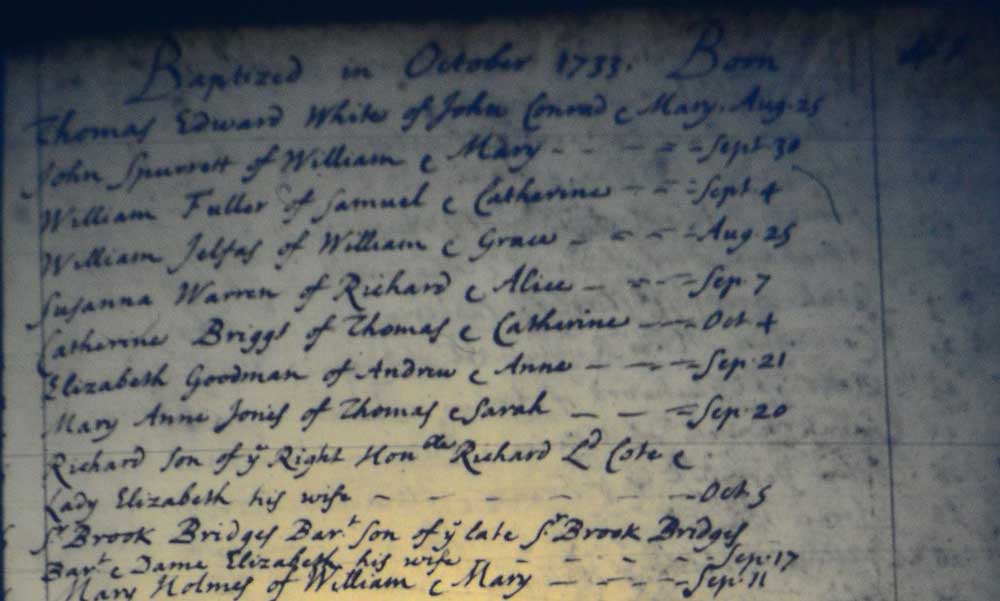 Baptized in October 1733. Born
Thomas Edward White of John Conrad & Mary. Aug. 25
John Spurrett of William & Mary - - - - Sept 30
William Fuller of Samuel & Catharine - - - Sept 4
William Jelfas of William & Grace - - - - Aug 25
Susanna Warren of Richard & Alice - - - - Sep. 7
Catherine Briggs of Thomas & Catherine - - - Oct 4
Elizabeth Goodman of Andrew & Anne - - - - Sep. 21
Mary Anne Jones of Thomas & Sarah - - - Sep. 20
Richard Son of yͤ Right Honᵇˡᵉ Richard Lᵈ Cote &
Lady Elizabeth his wife - - - - - - - Oct 5
Sʳ Brook Bridges Barᵗ Son of yͤ late Sʳ Brook Bridges
Barᵗ & Dame Elizabeth his wife - - - - - Sep. 17
Mary Holmes of William & Mary - - - - Sep. 11